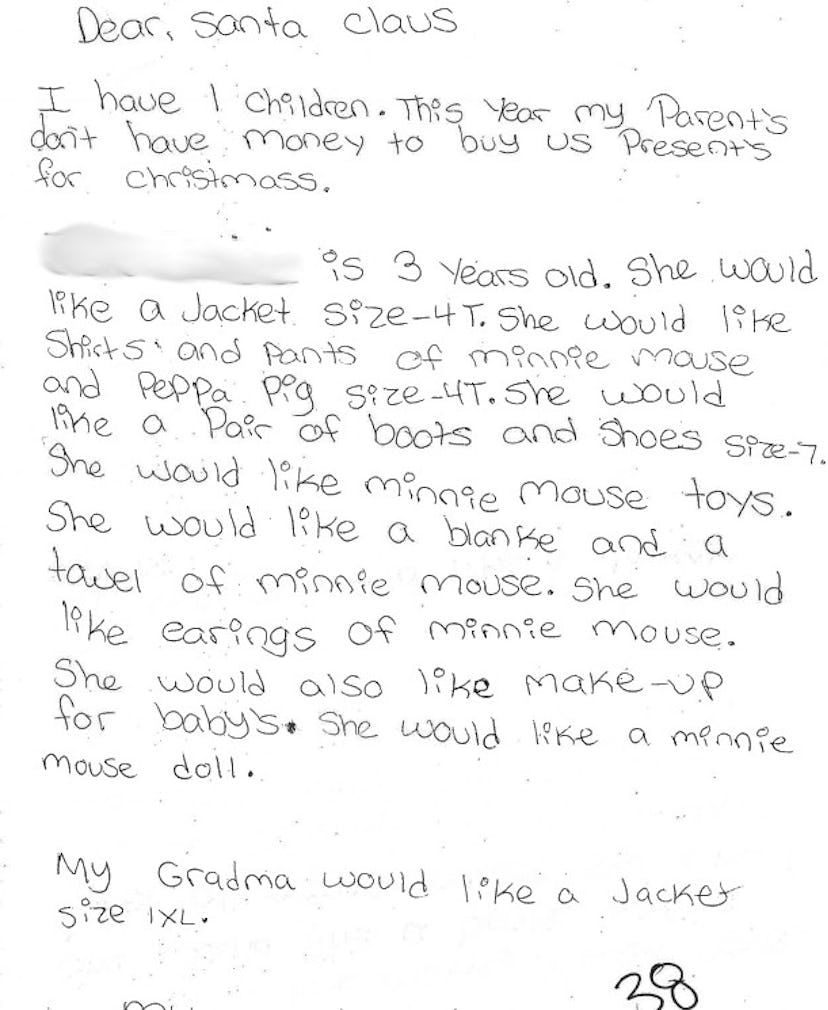 Dear, Santa Claus
I have 1 children. This year my Parent's
don't have money to buy us Present's
for christmass.
is 3 years old. She would
like a Jacket size-4T. She would like
Shirts and Pants of minnie mouse
and Peppa Pig size-4T. She would
like a Pair of boots and shoes size-7.
She would like minnie mouse toys.
She would like a blanke and a
towel of minnie mouse. She would
like earings of minnie mouse.
She would also like make-up
for baby's. She would like a minnie
mouse doll.
My Gradma would like a Jacket
size 1XL.
38